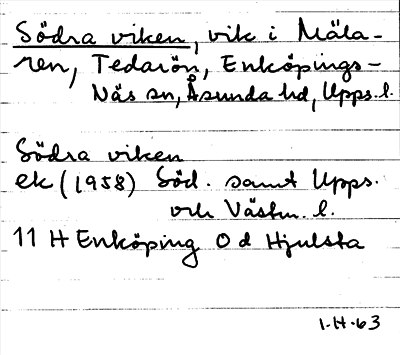 Södra viken, vik i Mäla-
ren, Tedarön, Enköpings-
Näs sn, Åsunda hd, Upps. l.
Södra viken
ek (1958) Söd. samt Upps.
och Västm. l.
11 H Enköping 0 d Hjulsta
1-H-63